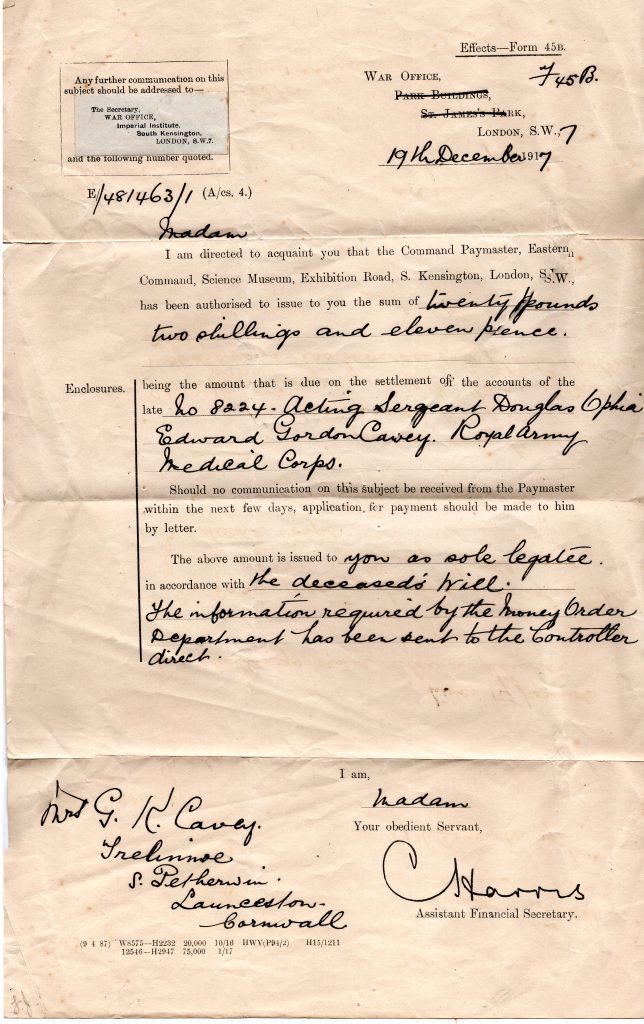 Effects—Form 45B.
Any further communication on this
subject should be addressed to—
The Secretary,
WAR OFFICE,
Imperial Institute,
South Kensington,
LONDON, S.W.7.
and the following number quoted.
WAR OFFICE,
F45B.
PARK BUILDINGS,
ST. JAMES'S PARK,
LONDON, S.W.,7
19th December 1917
E/481463/1 (A/cs. 4.)
Madam
I am directed to acquaint you that the Command Paymaster, Eastern
Command, Science Museum, Exhibition Road, S. Kensington, London, S.W.,
has been authorised to issue to you the sum of twenty pounds
two shillings and eleven pence.
Enclosures.
being the amount that is due on the settlement of the accounts of the
late No 8224. Acting Sergeant Douglas Ophia
Edward Gordon Cavey. Royal Army
Medical Corps.
Should no communication on this subject be received from the Paymaster
within the next few days, application for payment should be made to him
by letter.
The above amount is issued to you as sole legatee.
in accordance with the deceased's Will.
The information required by the Money Order
Department has been sent to the Controller
direct.
I am,
Madam
Your obedient Servant,
C Harris
Assistant Financial Secretary.
Mrs G. K. Cavey.
Trelinnoe
S. Petherwin.
Launceston-
Cornwall
(9 4 87) W8575—H2232 20,000 10/16 HWV(P94/2) H15/1211
12546—H2947 75,000 1/17